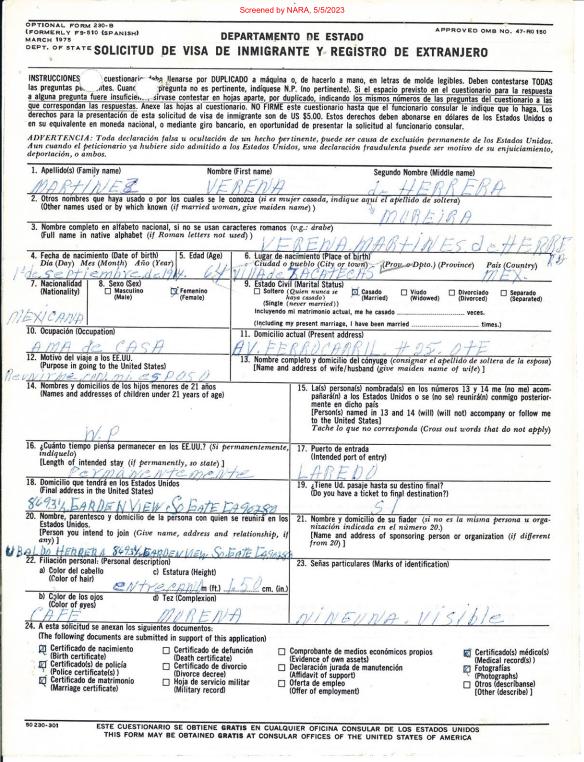 Screened by NARA, 5/5/2023
OPTIONAL FORM 230-B
(FORMERLY FS-510 (SPANISH)
MARCH 1975
DEPT. OF STATE
APPROVED OMB NO. 47-RO 160
DEPARTAMENTO DE ESTADO
SOLICITUD DE VISA DE INMIGRANTE Y REGISTRO DE EXTRANJERO
INSTRUCCIONES cuestionario debe llenarse por DUPLICADO a máquina o, de hacerlo a mano, en letras de molde legibles. Deben contestarse TODAS
las preguntas Cuando pregunta no es pertinente, indíquese N.P. (no pertinente). Si el espacio previsto en el cuestionario para la respuesta
a alguna pregunta fuere insuficiente, sírvase contestar en hojas aparte, por duplicado, indicando los mismos números de las preguntas del cuestionario a las
que correspondan las respuestas. Anexe las hojas al cuestionario. NO FIRME este cuestionario hasta que el funcionario consular le indique que lo haga. Los
derechos para la presentación de esta solicitud de visa de inmigrante son de US $5.00. Estos derechos deben abonarse en dólares de los Estados Unidos o
en su equivalente en moneda nacional, o mediante giro bancario, en oportunidad de presentar la solicitud al funcionario consular.
ADVERTENCIA: Toda declaración falsa u ocultación de un hecho pertinente, puede ser causa de exclusión permanente de los Estados Unidos.
Aun cuando el peticionario ya hubiere sido admitido a los Estados Unidos, una declaración fraudulenta puede ser motivo de su enjuiciamiento,
deportación, o ambos.
1. Apellido(s) (Family name) Nombre (First name) Segundo Nombre (Middle name)
MARTINEZ VERENA de HERRERA
2. Otros nombres que haya usado o por los cuales se le conozca (si es mujer casada, indique aquí el apellido de soltera)
(Other names used or by which known (if married woman, give maiden name)
MOREIRA
3. Nombre completo en alfabeto nacional, si no se usan caracteres romanos (v.g.: árabe)
(Full name in native alphabet (if Roman letters not used))
VERENA MARTINES de HERRE
4. Fecha de nacimiento (Date of birth)
Día (Day) Mes (Month) Año (Year)
5. Edad (Age)
6. Lugar de nacimiento (Place of birth)
Ciudad o pueblo (City or town) (Prov. o Dpto.) (Province) País (Country)
1º de septiembre de 64 ZACATECAS MEX.
7. Nacionalidad
(Nationality)
MEXICANA
8. Sexo (Sex)
Masculino
(Male)
Femenino
(Female)
9. Estado Civil (Marital Status)
Soltero (Quien nunca se
haya casado)
(Single (never married))
Casado
(Married)
Viudo
(Widowed)
Divorciado
(Divorced)
Separado
(Separated)
Incluyendo mi matrimonio actual, me he casado ............ veces.
(Including my present marriage, I have been married ............ times.)
10. Ocupación (Occupation)
AMA de CASA
11. Domicilio actual (Present address)
AV. FERROCARRIL #25 OTE
12. Motivo del viaje a los EE.UU.
(Purpose in going to the United States)
Reunirme con mi esposo
13. Nombre completo y domicilio del cónyuge (consignar el apellido de soltera de la esposa)
[Name and address of wife/husband (give maiden name of wife)]
14. Nombres y domicilios de los hijos menores de 21 años
(Names and addresses of children under 21 years of age)
N.P
15. La(s) persona(s) nombrada(s) en los números 13 y 14 me (no me) acom-
pañará(n) a los Estados Unidos o se (no se) reunirá(n) conmigo posterior-
mente en dicho país
[Person(s) named in 13 and 14 (will) (will not) accompany or follow me
to the United States]
Tache lo que no corresponda (Cross out words that do not apply)
16. ¿Cuánto tiempo piensa permanecer en los EE.UU.? (Si permanentemente,
indíquelo)
[Length of intended stay (if permanently, so state)]
Permanentemente
17. Puerto de entrada
(Intended port of entry)
LAREDO
18. Domicilio que tendrá en los Estados Unidos
(Final address in the United States)
8693½ GARDEN VIEW So GATE CA 90280
19. ¿Tiene Ud. pasaje hasta su destino final?
(Do you have a ticket to final destination?)
SI
20. Nombre, parentesco y domicilio de la persona con quien se reunirá en los
Estados Unidos.
[Person you intend to join (Give name, address and relationship, if
any)]
UBALDO HERRERA 8693½ GARDEN VIEW So GATE CA 90280
21. Nombre y domicilio de su fiador (si no es la misma persona u orga-
nización indicada en el número 20.)
[Name and address of sponsoring person or organization (if different
from 20)]
22. Filiación personal: (Personal description)
a) Color del cabello
(Color of hair)
c) Estatura (Height)
entrecano m (ft.) 1.50 cm. (in.)
b) Color de los ojos
(Color of eyes)
d) Tez (Complexion)
CAFE MORENA
23. Señas particulares (Marks of identification)
NINGUNA. Visible
24. A esta solicitud se anexan los siguientes documentos:
(The following documents are submitted in support of this application)
Certificado de nacimiento
(Birth certificate)
Certificado(s) de policía
(Police certificate(s))
Certificado de matrimonio
(Marriage certificate)
Certificado de defunción
(Death certificate)
Certificado de divorcio
(Divorce decree)
Hoja de servicio militar
(Military record)
Comprobante de medios económicos propios
(Evidence of own assets)
Declaración jurada de manutención
(Affidavit of support)
Oferta de empleo
(Offer of employment)
Certificado(s) médico(s)
(Medical record(s))
Fotografías
(Photographs)
Otros (descríbanse)
[Other (describe)]
50 230-301
ESTE CUESTIONARIO SE OBTIENE GRATIS EN CUALQUIER OFICINA CONSULAR DE LOS ESTADOS UNIDOS
THIS FORM MAY BE OBTAINED GRATIS AT CONSULAR OFFICES OF THE UNITED STATES OF AMERICA